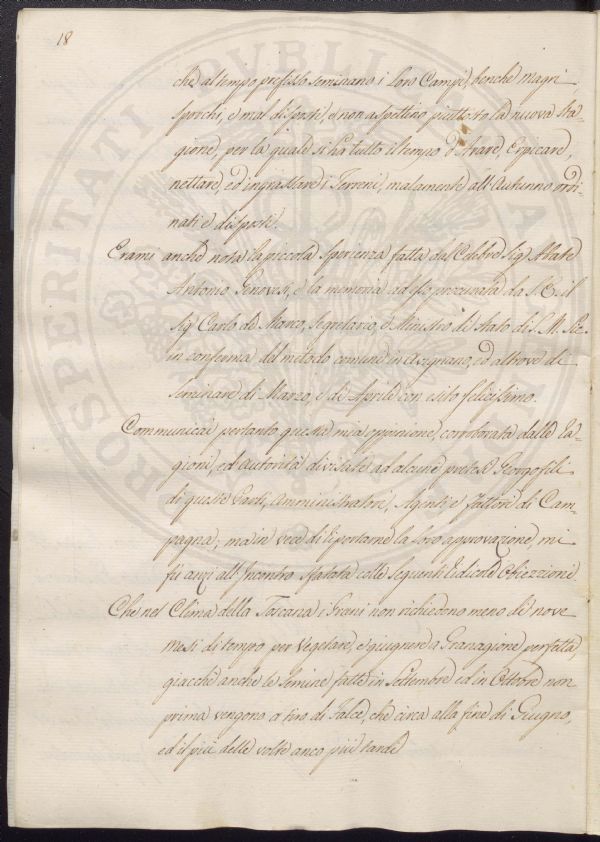 18
che al tempo prefisso seminano i loro Campi, benche magri
sporchi, e mal disposti, e non aspettino piuttosto la nuova sta=
gione, per la quale si ha tutto il tempo d'Arare, Erpicare,
nettare, ed ingrassare i Terreni, malamente all'Autunno ordi=
nati e disposti.
Erami anche nota la piccola sperienza fatta dal Celebre Sig. Abate
Antonio Genovesi, e la memoria ad esso procurata da S. E. il
Sig. Carlo de Marco, Segretario, e Ministro di Stato di S. M. Sic.
in conferma del metodo comune in Avignano, ed altrove di
seminare di Marzo, e di Aprile con esito felicissimo.
Communicai pertanto questa mia opinione, corroborata dalle Ra=
gioni, ed autorità divisate ad alcuni pretesi Georgofili
di queste Parti, Amministratori, Agenti, e Fattori di Cam=
pagna; ma in vece di riportarne la loro approvazione, mi
fù anzi all'Incontro sfatata colle seguenti ridicole Obiezzioni.
Che nel Clima della Toscana i Grani non richiedono meno di nove
mesi di tempo per vegetare, e giugnere a Granagione perfetta,
giacche anche le semine fatte in Settembre ed in Ottobre non
prima vengono a tiro di Falce, che circa alla fine di Giugno,
ed il più delle volte anco più tardi
PROSPERITATI PVBLIC